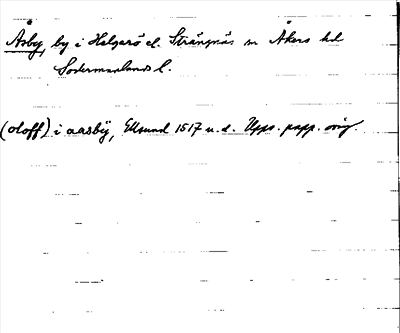 Åsby, by i Helgarö el. Strängnäs sn Åkers hd
Södermanlands l.
(oloff) i aasbÿ, Ellsund 1517 u.d. Upps. papp. orig.